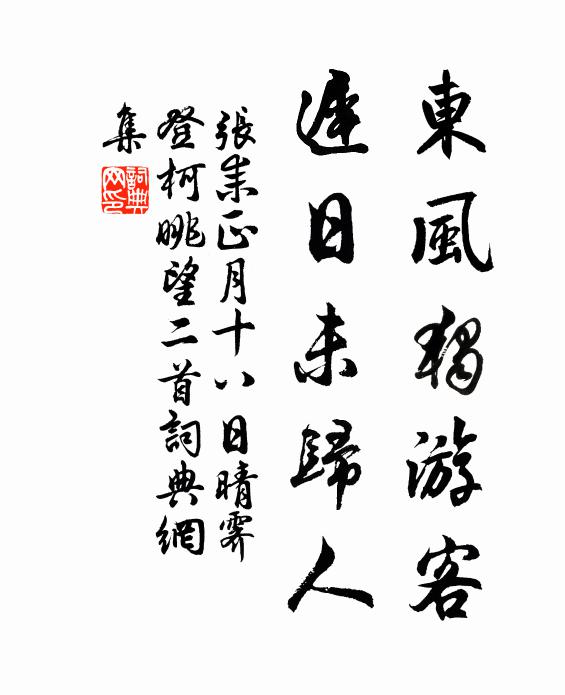 東風獨游客
遲日未歸人
張耒正月十八日晴霽
登柯眺望二首詞典網
集
詞典網印